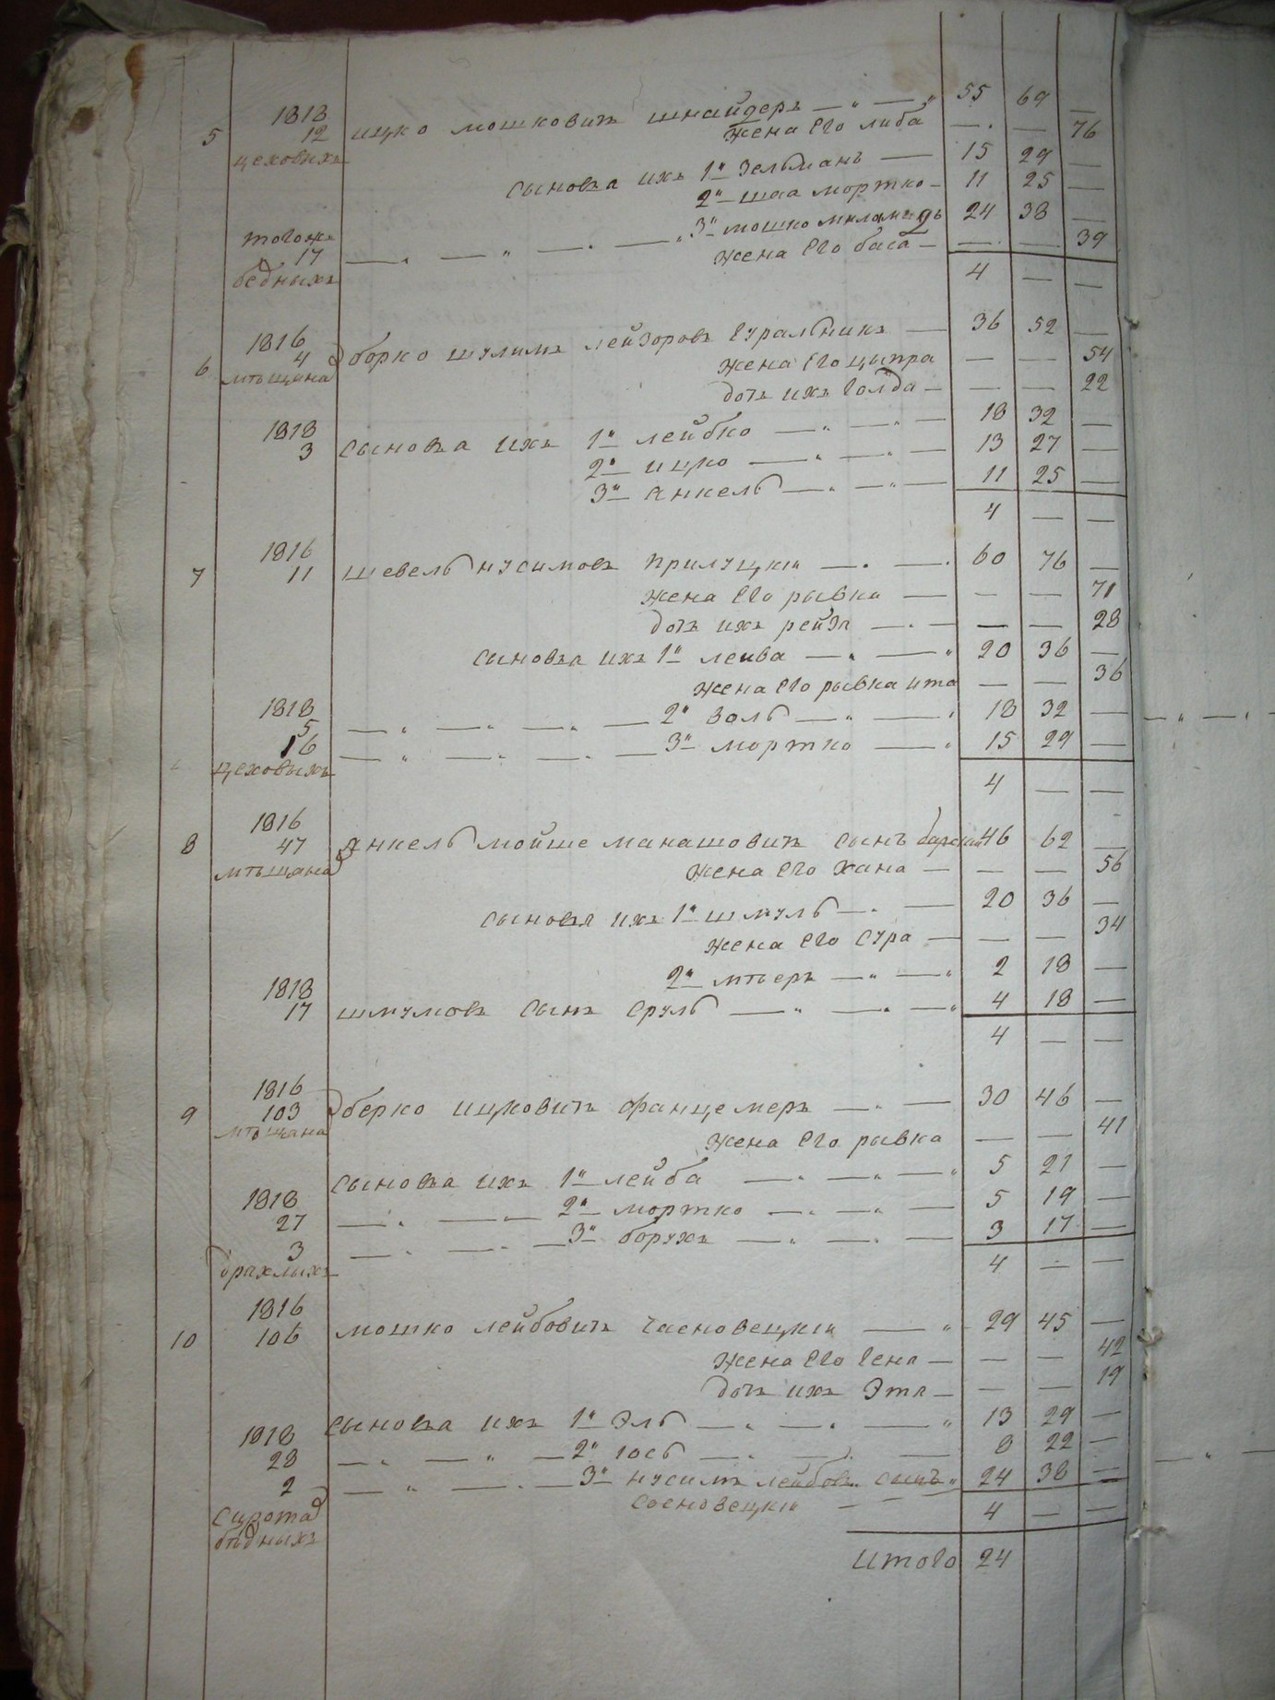 1818
5 12 ицко мошковичъ шнайдеръ — „ — „ 55 69 —
цеховыхъ жена его либа — . — 76
сыновъя ихъ 1й Зельманъ — 15 29 —
2й шая мортко — 11 25 —
тогожъ 3й мошко меламедъ 24 38 —
17 — „ — „ — . — „ жена его бася — — — 39
бедныхъ 4 — —
1816
6 4 борко шулимъ лейзоровъ гуральникъ — 36 52 —
мѣщана жена его ципра — — 54
дочь ихъ голда — — — 22
1818
3 сыновъя ихъ 1й лейбко — „ — „ — 18 32 —
2й ицко — „ — „ — 13 27 —
3й янкель — „ — „ — 11 25 —
4 — —
1816
7 11 шевель нусимовъ прилуцкій — . — . 60 76 —
жена его рывка — — — 71
дочь ихъ рейзя — . — — — 28
сыновъя ихъ 1й лейба — „ — „ 20 36 —
жена его рывка ита — — 36
1818
5 — „ — „ — „ — 2йВоль — „ — „ 18 32 —
16 — „ — „ — „ — 3й мортко — „ 15 29 —
цеховыхъ
4 — —
1816
8 47 янкель мойше манашовичъ сынъ 46 62 —
мѣщана жена его хана — — — 56
сыновъя ихъ 1й шмуль — . — 20 36 —
жена его сура — — — 34
2й мѣеръ — „ — „ 2 18 —
1818
17 шмулювъ сынъ сруль — „ — „ — „ 4 18 —
4 — —
1816
9 103 берко ицковичъ — „ — 30 46 —
мѣщана жена его рывка — — 41
сыновъя ихъ 1й лейба — „ — „ — „ 5 21 —
1818
27 — „ — „ — 2й мортко — „ — „ — 5 19 —
3 — „ — „ — 3й борухъ — „ — „ — 3 17 —
дряхлыхъ 4 — —
1816
10 106 мошко лейбовичъ сасновецкій — „ 29 45 —
жена его геня — — — 42
дочь ихъ Этя — — — 19
сыновъя ихъ 1й Эль — „ — „ — „ 13 29 —
1818
28 — „ — „ — 2й Іось — „ — „ — 8 22 —
2 — „ — „ — 3й нусимъ лейбовъ сынъ „ 24 38 —
сирота сосновецкій — — 4 — —
бѣдныхъ
итого 24